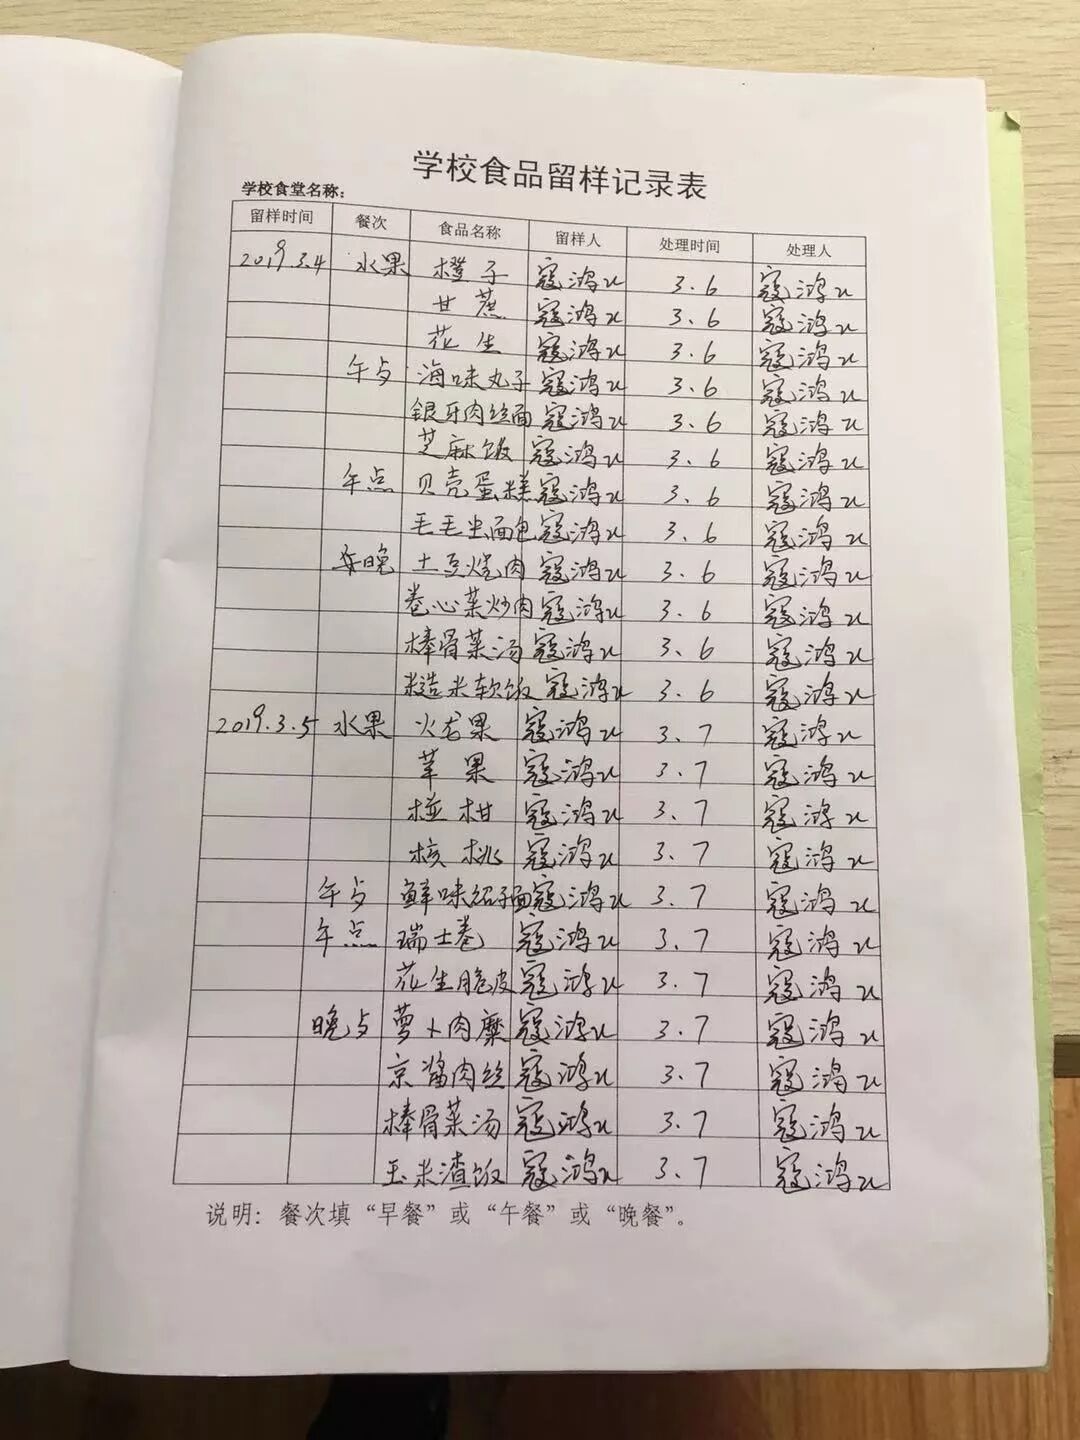 学校食品留样记录表
学校食堂名称:
留样时间 餐次 食品名称 留样人 处理时间 处理人
2019.3.4 水果 橙子 寇鸿 3.6 寇鸿
甘蔗 寇鸿 3.6 寇鸿
花生 寇鸿 3.6 寇鸿
午 海味丸子 寇鸿 3.6 寇鸿
银牙肉丝面 寇鸿 3.6 寇鸿
芝麻饭 寇鸿 3.6 寇鸿
午点 贝壳蛋糕 寇鸿 3.6 寇鸿
毛毛虫面包 寇鸿 3.6 寇鸿
晚 土豆烧肉 寇鸿 3.6 寇鸿
卷心菜炒肉 寇鸿 3.6 寇鸿
棒骨菜汤 寇鸿 3.6 寇鸿
糙米软饭 寇鸿 3.6 寇鸿
2019.3.5 水果 火龙果 寇鸿 3.7 寇鸿
苹果 寇鸿 3.7 寇鸿
椪柑 寇鸿 3.7 寇鸿
核桃 寇鸿 3.7 寇鸿
午 鲜味绍子面 寇鸿 3.7 寇鸿
午点 瑞士卷 寇鸿 3.7 寇鸿
花生脆皮 寇鸿 3.7 寇鸿
晚 萝卜肉糜 寇鸿 3.7 寇鸿
京酱肉丝 寇鸿 3.7 寇鸿
棒骨菜汤 寇鸿 3.7 寇鸿
玉米渣饭 寇鸿 3.7 寇鸿
说明:餐次填“早餐”或“午餐”或“晚餐”。